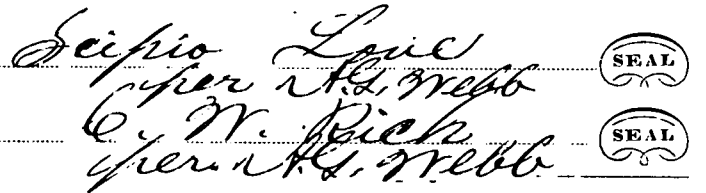 Scipio Love SEAL
per A.G. Webb
C. W. Rich SEAL
per A.G. Webb